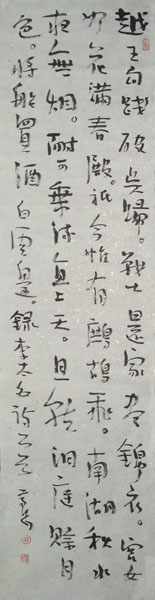 越王句踐破吳歸。戰士還家盡錦衣。宮女
如花滿春殿。祇今惟有鷓鴣飛。南湖秋水
夜無烟。耐可乘流直上天。且就洞庭賒月
色。將船買酒白雲邊。錄李太白詩二首